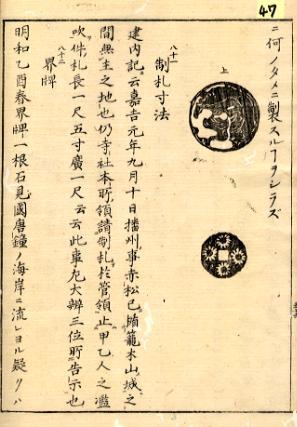 47
ニ何ノタメニ製スルヿヲシラズ
上
八十一
制札寸法
建内記云嘉吉元年九月十日播州事赤松已楯籠木山城之
間無主之地也仍寺社本所領請制札於管領止甲乙人之濫
吹件札長一尺五寸廣一尺云云此事左大辨三位所告示也
八十二
界牌
明和乙酉春界牌一根石見國唐鐘ノ海岸ニ流レヨル疑クハ